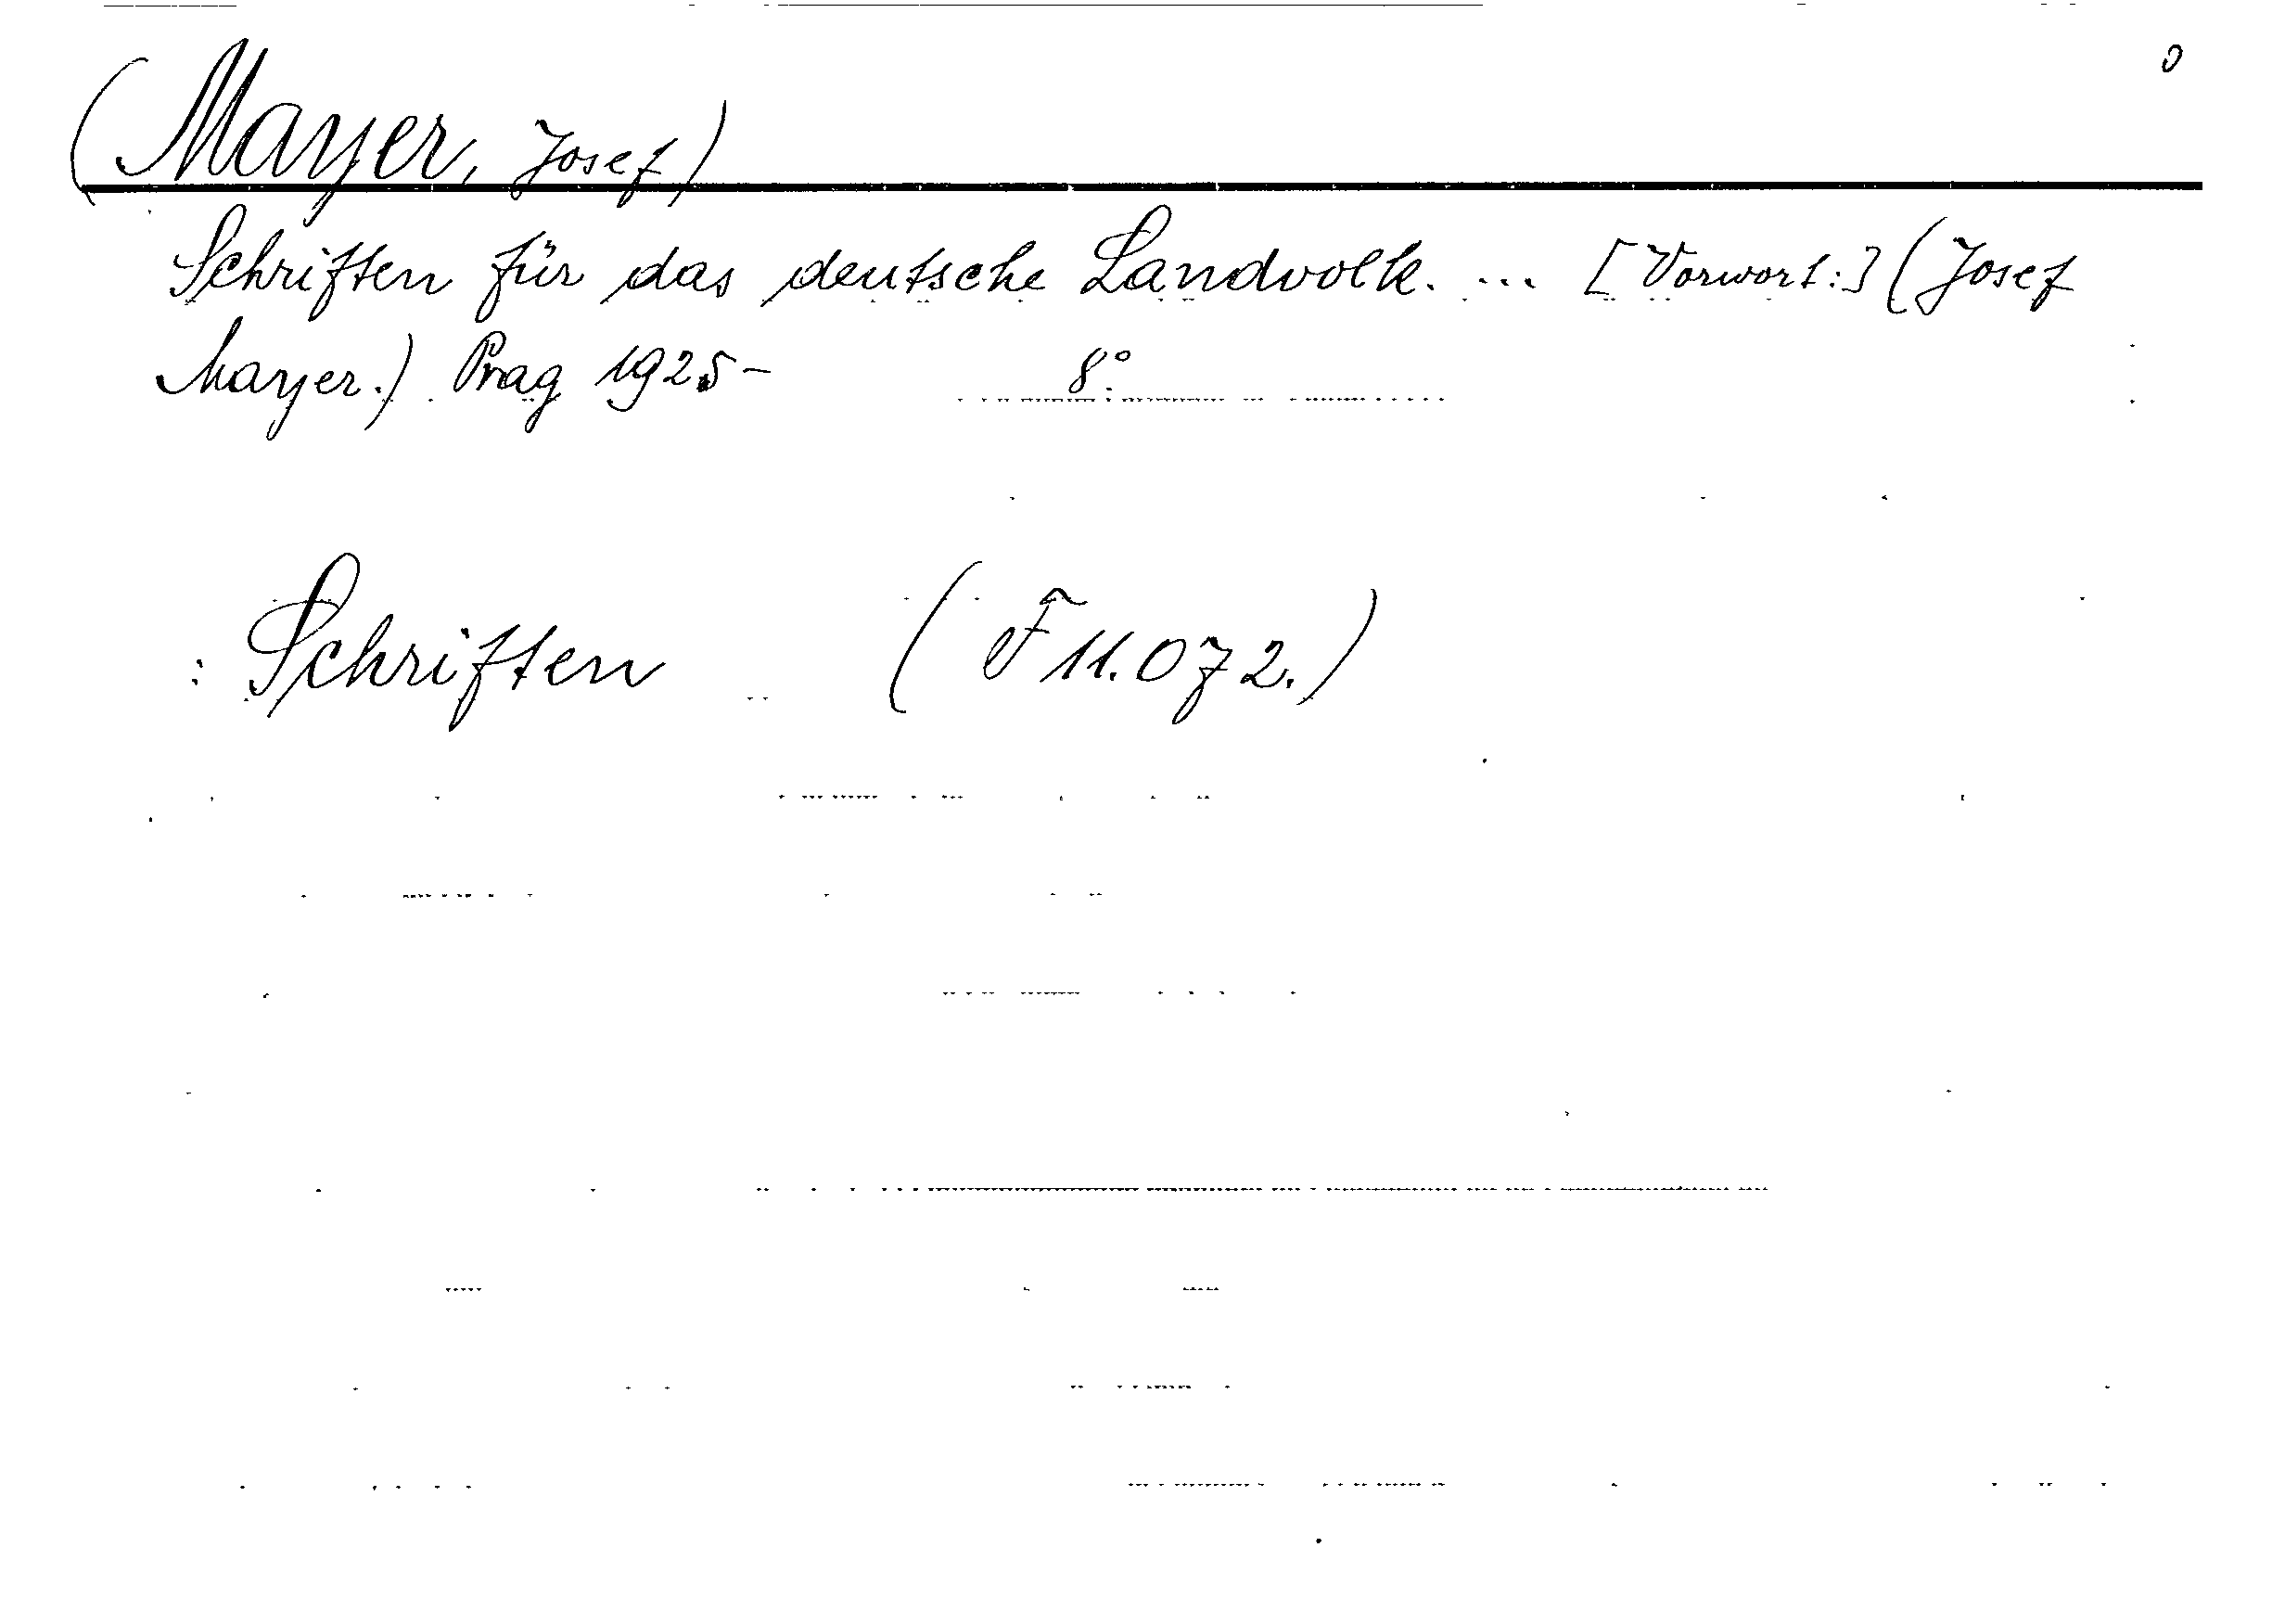 (Mayer, Josef)
Schriften für das deutsche Landvolk. ... [Vorwort:] (Josef
Mayer.) Prag 1925- 8°.
: Schriften (F 11.072.)